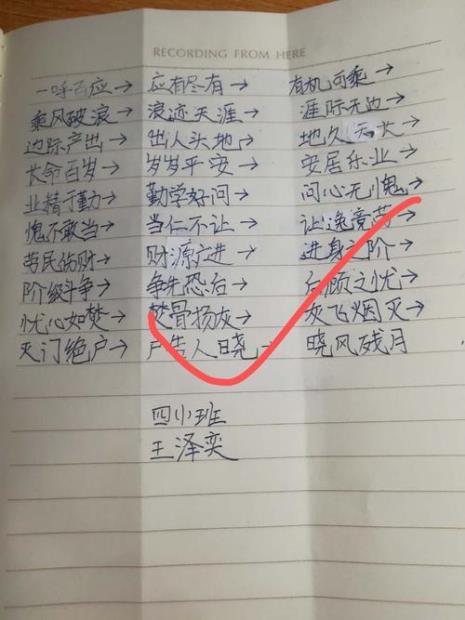 RECORDING FROM HERE
一呼百应→ 应有尽有→ 有机可乘→
乘风破浪→ 浪迹天涯→ 涯际无边→
边际产出→ 出人头地→ 地久天长
长命百岁→ 岁岁平安→ 安居乐业→
业精于勤→ 勤学好问→ 问心无愧→
愧不敢当→ 当仁不让→ 让逸竞劳→
劳民伤财→ 财源广进→ 进身之阶→
阶级斗争→ 争先恐后→ 后顾之忧→
忧心如焚→ 焚骨扬灰→ 灰飞烟灭→
灭门绝户→ 户告人晓→ 晓风残月
四小班
王泽奕